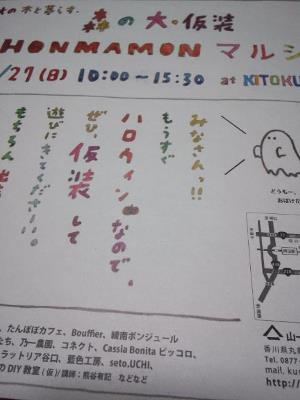 の木と暮らす。 森の大・仮装
HONMAMON マルシ
/27(日) 10:00～15:30 at KITOKU
みなさんっ!!
もうすぐ
ハロウィンなので、
ぜひ、仮装して
遊びにきてください!!。
もちろん
どうもー、
おばけだ
山一
香川県丸
Tel. 0877
mail. ku
、たんぽぽカフェ、Bouffier、綾南ボンジュール
たち、乃一農園、コネクト、Cassia Bonita ピッコロ、
ラットリア谷口、藍色工房、seto.UCHI、
の DIY 教室(仮)/講師：熊谷有記 などなど